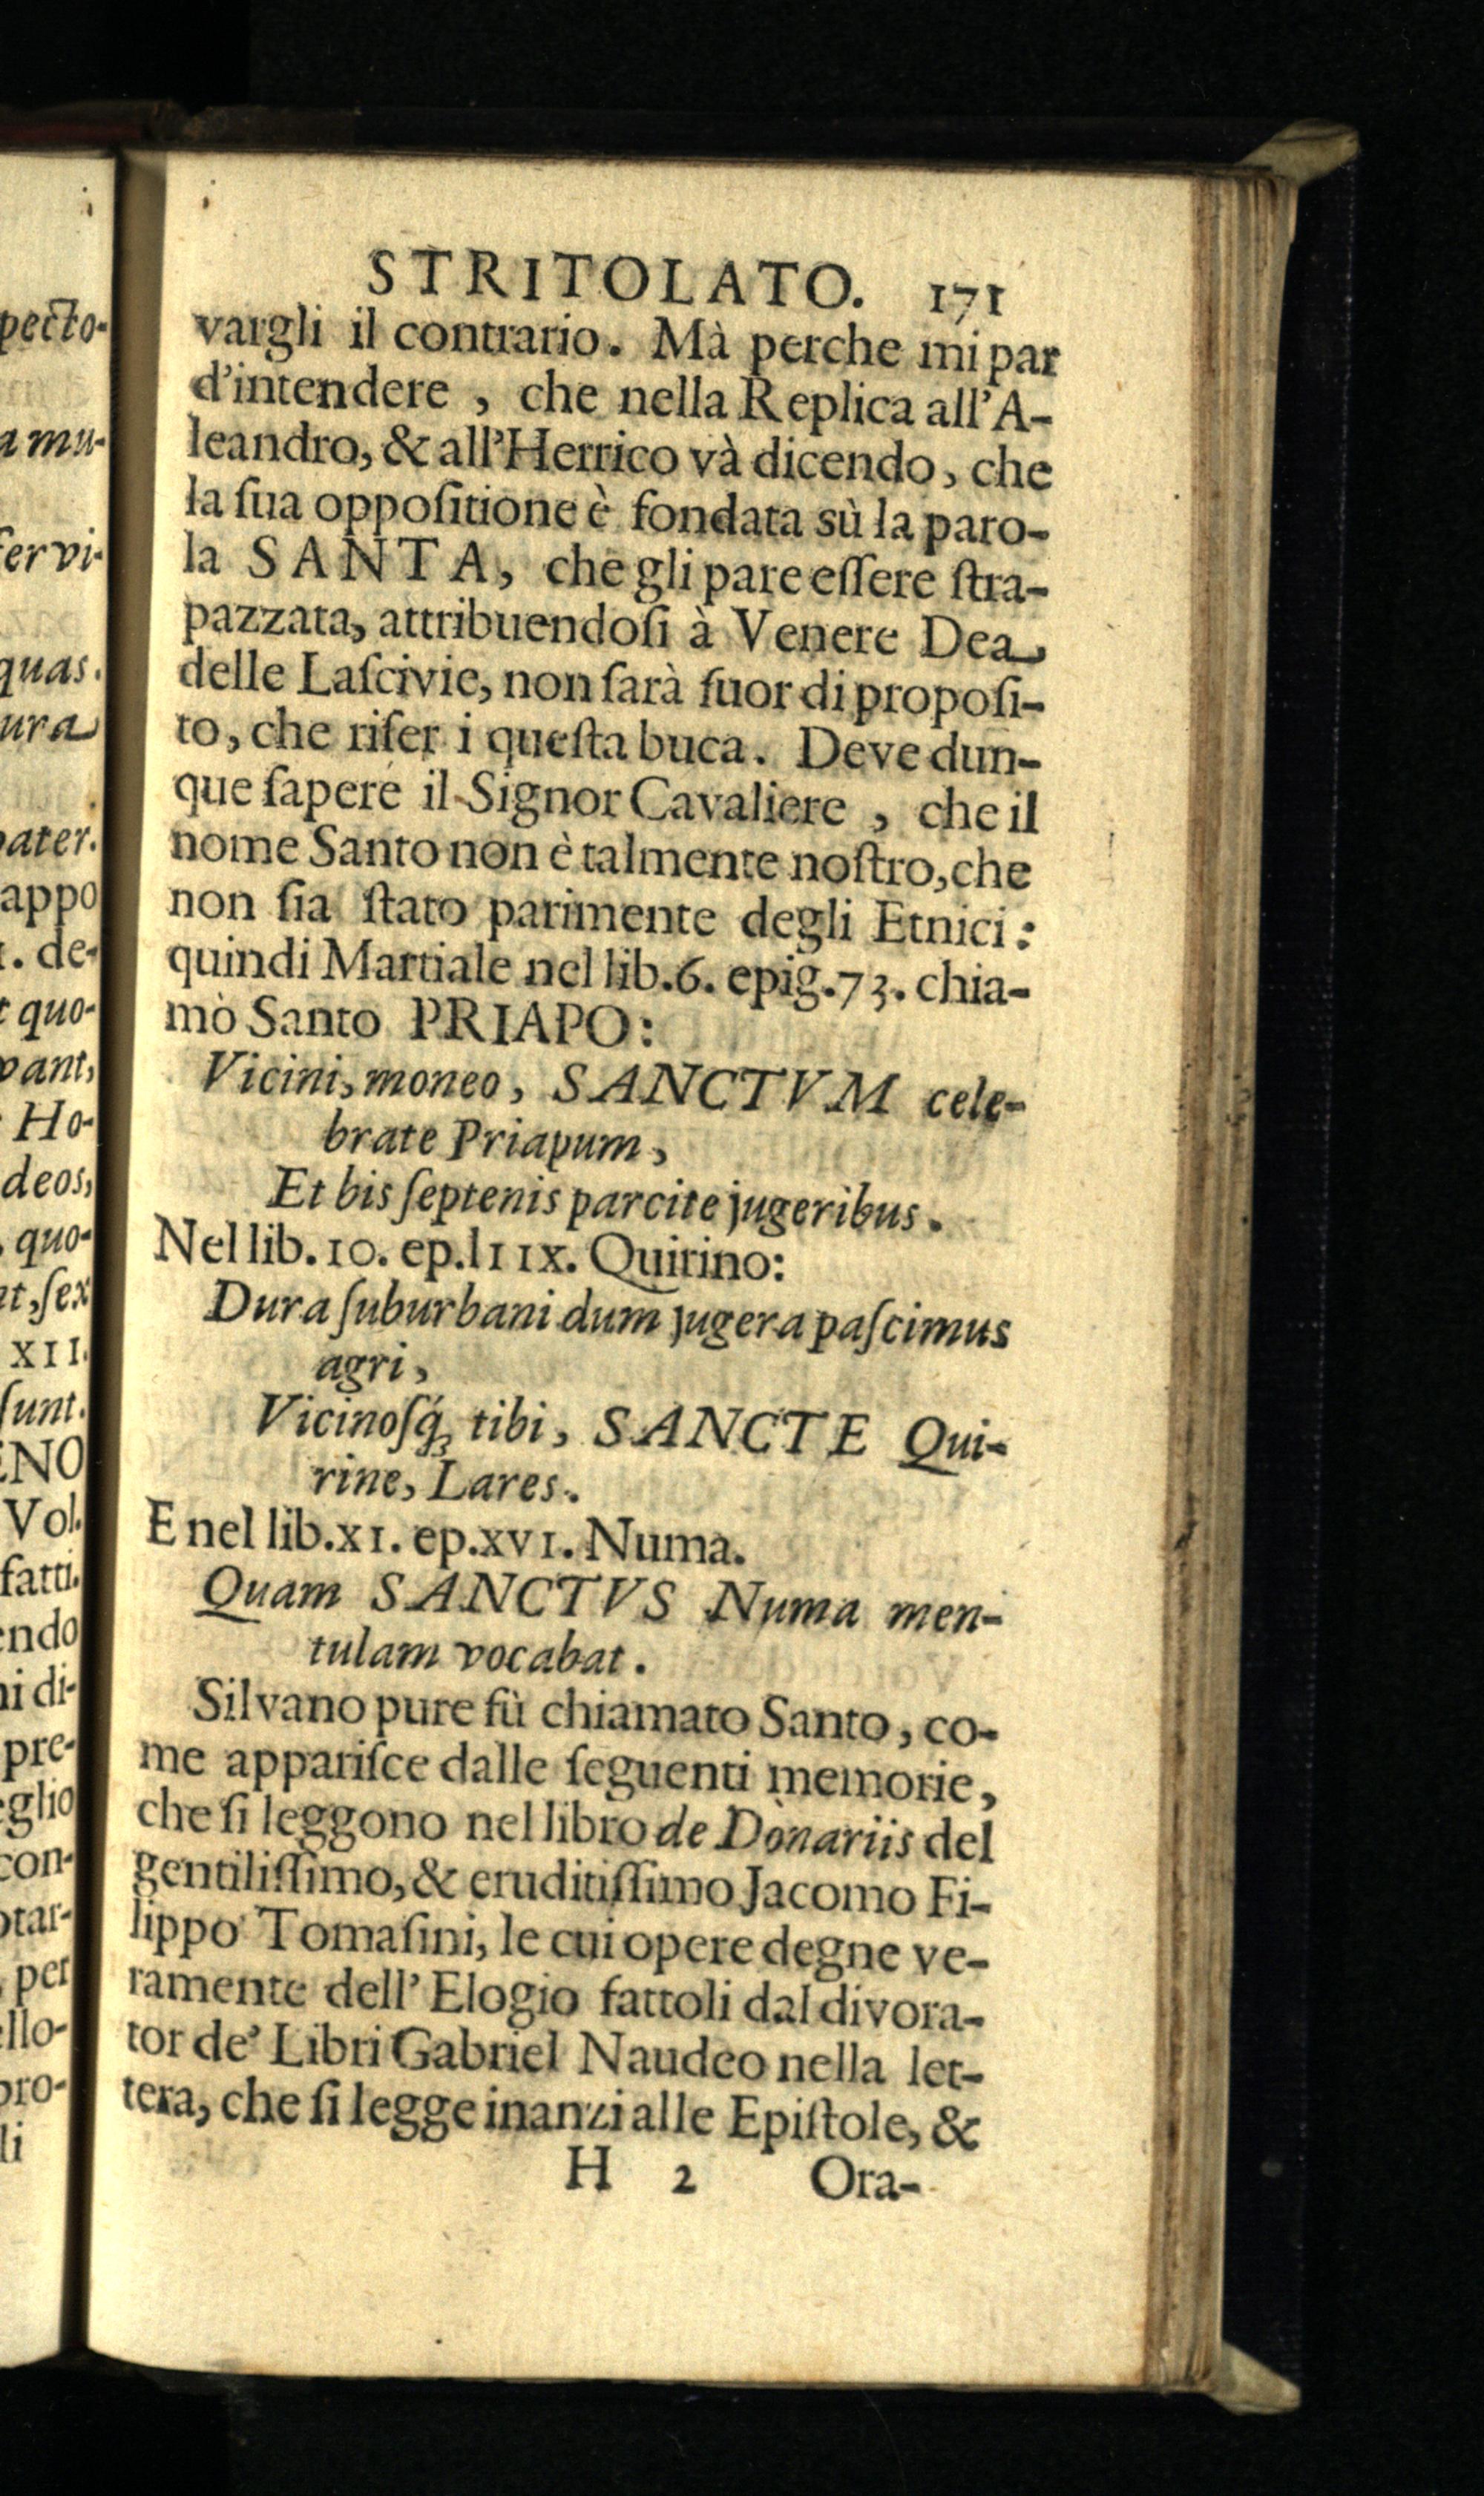 STRITOLATO. 171
vargli il contrario. Mà perche mi par
d'intendere, che nella Replica all'A-
leandro, & all'Herrico và dicendo, che
la ſua oppoſitione è fondata sù la paro-
la SANTA, che gli pare eſſere ſtra-
pazzata, attribuendoſi à Venere Dea
delle Laſcivie, non ſarà fuor di propoſi-
to, che riſer i queſta buca. Deve dun-
que ſapere il Signor Cavaliere, che il
nome Santo non è talmente noſtro, che
non ſia ſtato parimente degli Etnici:
quindi Martiale nel lib.6. epig.73. chia-
mò Santo PRIAPO:
Vicini, moneo, SANCTVM cele-
brate Priapum,
Et bis ſeptenis parcite jugeribus.
Nel lib.10. ep.lIIX. Quirino:
Dura ſuburbani dum jugera paſcimus
agri,
Vicinoſq́; tibi, SANCTE Qui-
rine, Lares.
E nel lib.XI. ep.XVI. Numa.
Quam SANCTVS Numa men-
tulam vocabat.
Silvano pure fù chiamato Santo, co-
me appariſce dalle ſeguenti memorie,
che ſi leggono nel libro de Donariis del
gentiliſſimo, & eruditiſſimo Jacomo Fi-
lippo Tomaſini, le cui opere degne ve-
ramente dell'Elogio fattoli dal divora-
tor de' Libri Gabriel Naudeo nella let-
tera, che ſi legge inanzi alle Epiſtole, &
H 2 Ora-